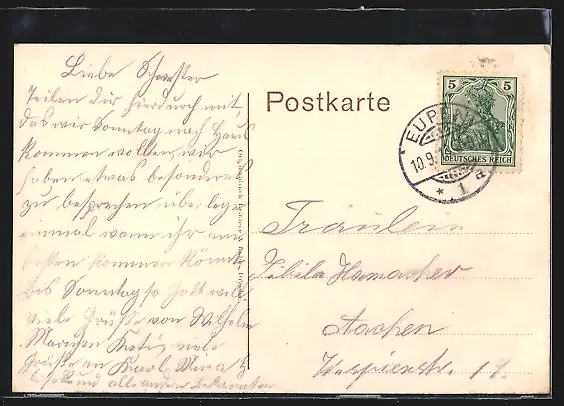 Liebe Schwester
Teilen dir hierdurch mit,
das wir Sonntag nach Haus
kommen wollten, wir
haben etwas besonderes
zu besprechen überlege
einmal wann ihr am
besten kommen könnt
bis Sonntag so Gott will
viele Grüße von
Marichen viele
Grüße an Karl
und alle anderen Bekannten
Postkarte
5 5
DEUTSCHES REICH
EUPEN
10.9.
* 1 a
Fräulein
Sibila Hamacher
Aachen
19